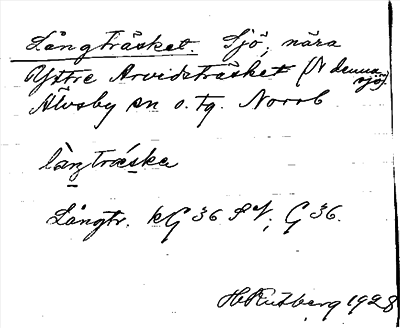 Långträsket. Sjö, nära
Yttre Arvidsträsket (N denna sjö).
Älvsby sn o. tg. Norrb
làŋtrǽska
Långtr. kG 36 SV, G 36.
H Rutberg 1928